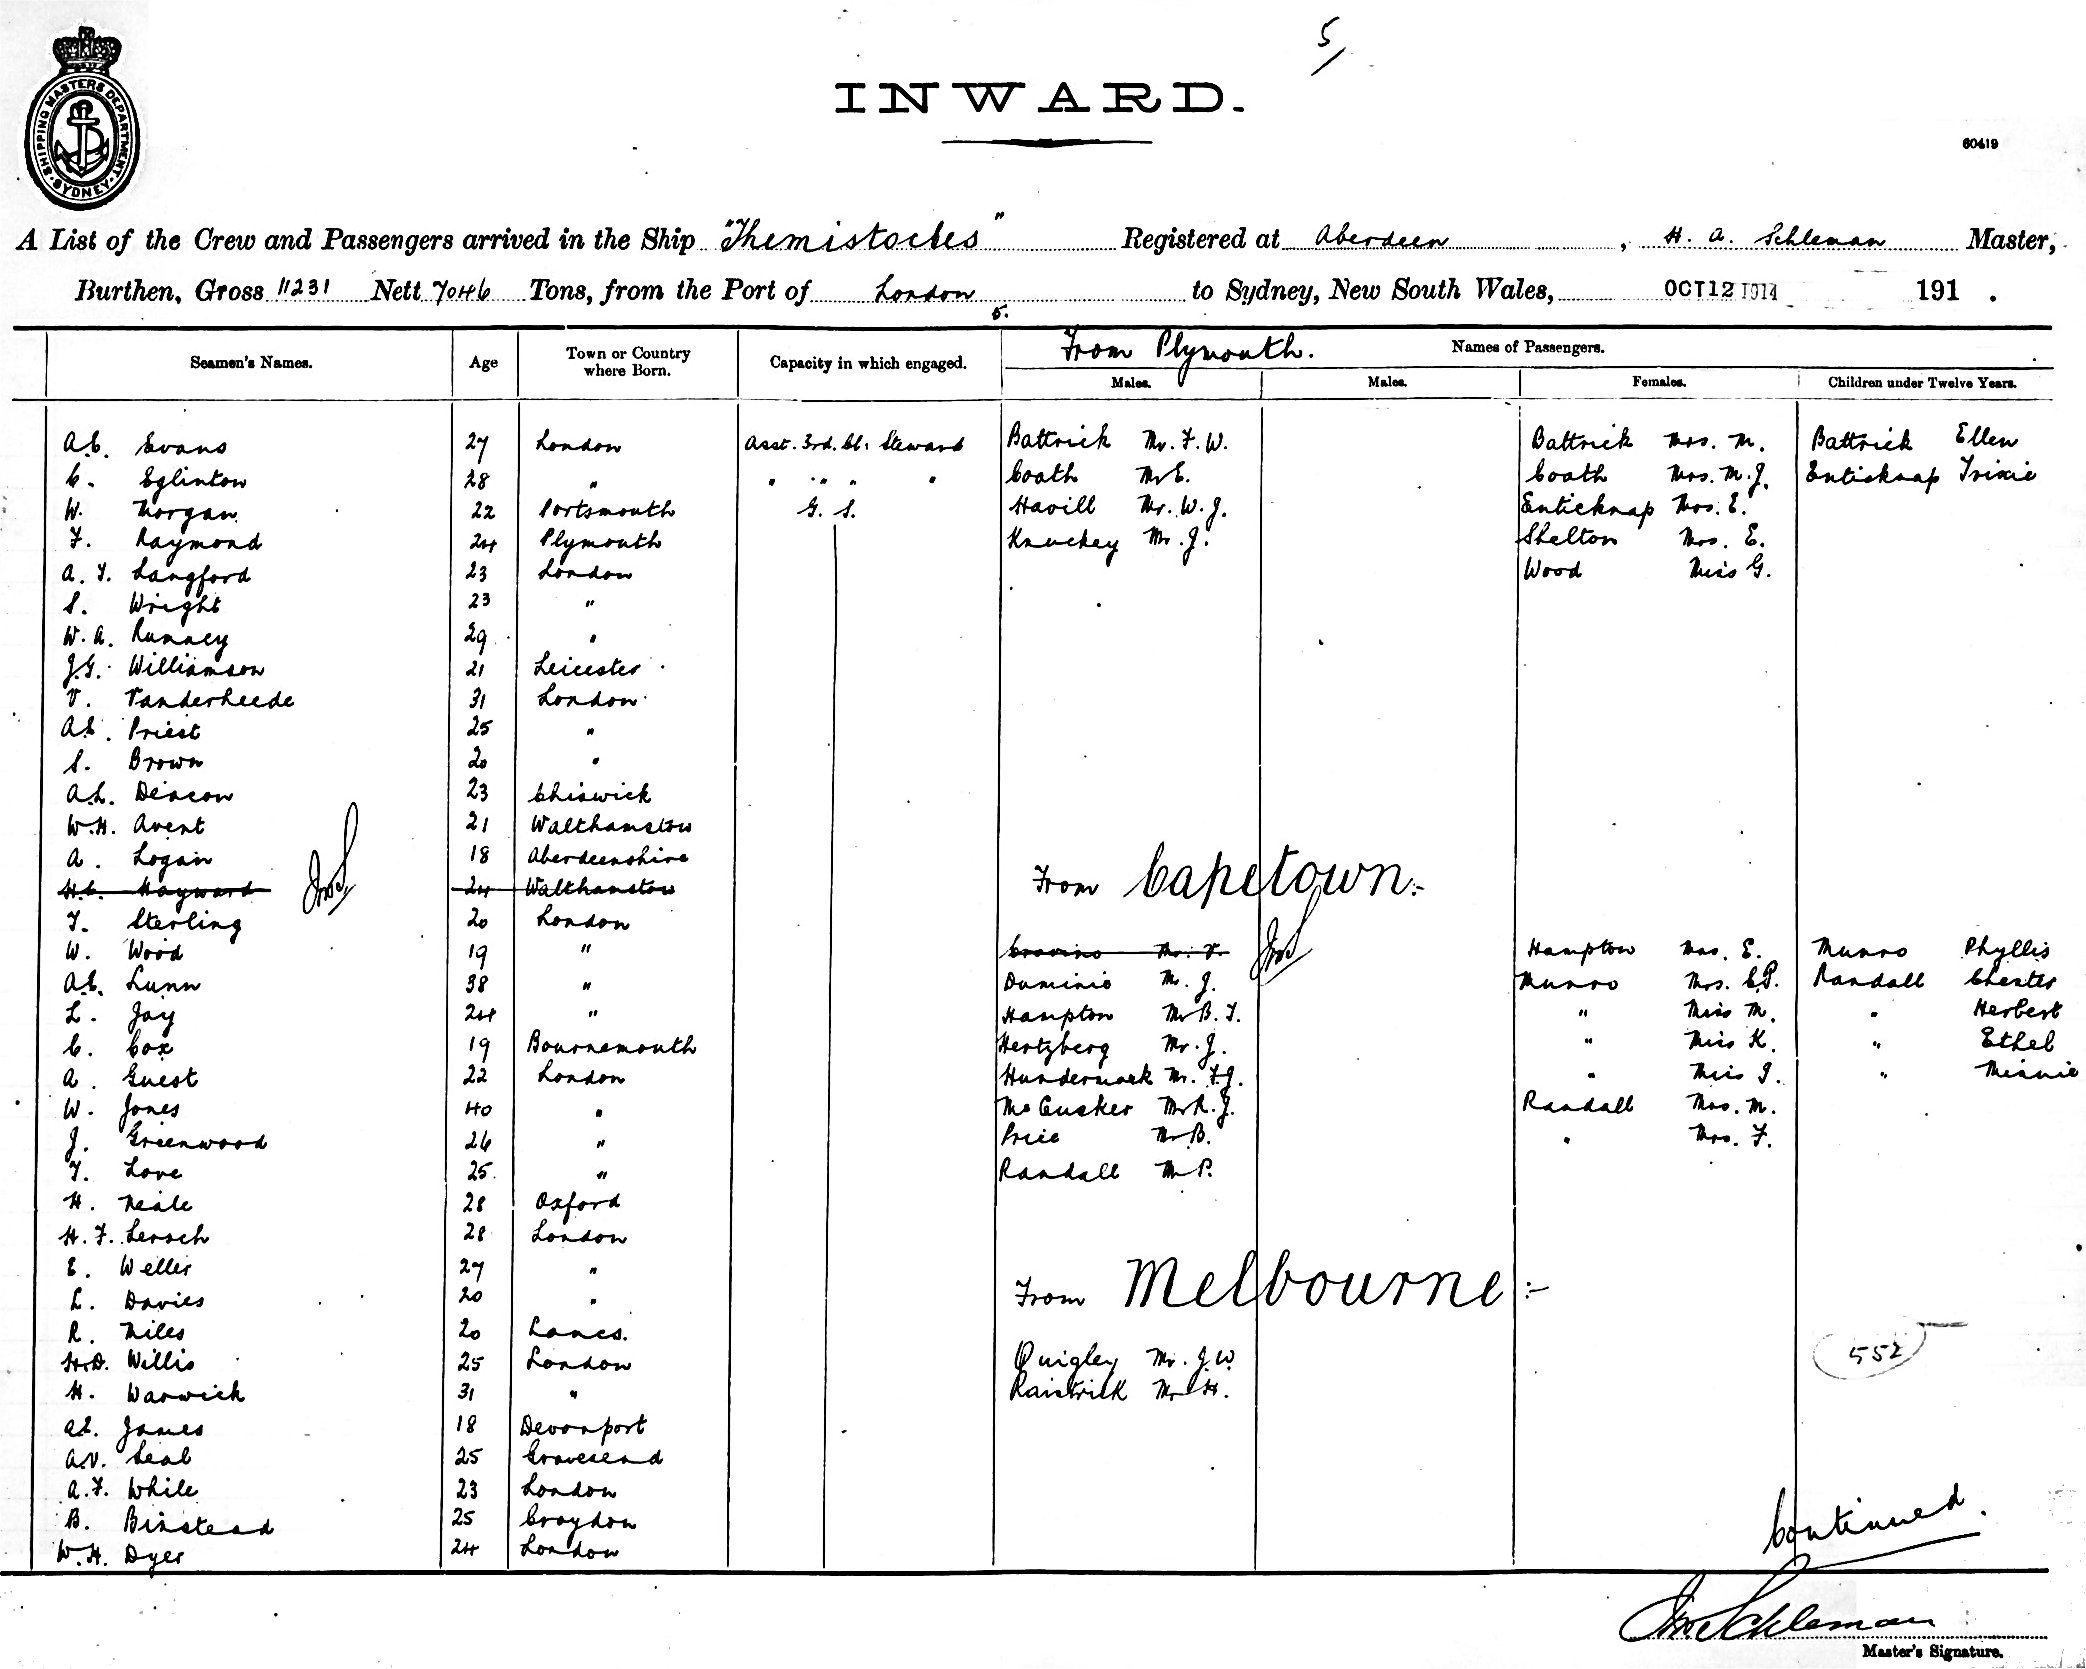 5/
INWARD.
SHIPPING MASTERS DEPARTMENT SYDNEY
60419
A List of the Crew and Passengers arrived in the Ship "Themistocles" Registered at Aberdeen, H. A. Schleman Master,
Burthen, Gross 11231 Nett 7046 Tons, from the Port of London to Sydney, New South Wales, OCT 12 1914 191 .
5.
Seamen's Names. Age Town or Country where Born. Capacity in which engaged. From Plymouth. Names of Passengers.
Males. Males. Females. Children under Twelve Years.
A.C. Evans 27 London Asst. 3rd. Cl. Steward Battrick Mr. F. W. Battrick Mrs. M. Battrick Ellen
C. Eglinton 28 " " " " " Coath Mr E. Coath Mrs. M. J. Enticknap Trixie
W. Morgan 22 Portsmouth G. S. Havill Mr. W. J. Enticknap Mrs. E.
F. Raymond 24 Plymouth Knuckey Mr. J. Shelton Mrs. E.
A. T. Langford 23 London Wood Miss G.
S. Wright 23 "
W. A. Rumney 29 "
J.G. Williamson 21 Leicester
V. Vanderheede 31 London
A.E. Priest 25 "
S. Brown 20 "
A.L. Deacon 23 Chiswick
W.H. Avent 21 Walthamstow
A. Logan 18 Aberdeenshire
H.C. Hayward 24 Walthamstow From Capetown:-
T. Sterling 20 London
W. Wood 19 " Mr. V. Hampton Mrs. E. Munro Phyllis
A.E. Lunn 38 " Duminio Mr. J. Munro Mrs. C.P. Randall Chester
L. Jay 24 " Hampton Mr B. T. " Miss M. " Herbert
C. Cox 19 Bournemouth Hertzberg Mr. J. " Miss K. " Ethel
A. Guest 22 London Hundermark Mr. F.J. " Miss I. " Minnie
W. Jones 40 " McCusker Mr R. J. Randall Mrs. M.
J. Greenwood 26 " Price Mr B. " Mrs. F.
T. Love 25 " Randall Mr P.
H. Neale 28 Oxford
H. F. Lersch 28 London
E. Weller 27 "
L. Davies 20 " From Melbourne:-
R. Niles 20 Lancs.
H.D. Willis 25 London Quigley Mr. J.W. 552
H. Warwick 31 " Raistrick Mr H.
A.E. James 18 Devonport
A.V. Seal 25 Gravesend
A. F. While 23 London
B. Binstead 25 Croydon
W. H. Dyer 24 London
Continued.
Schleman
Master's Signature.